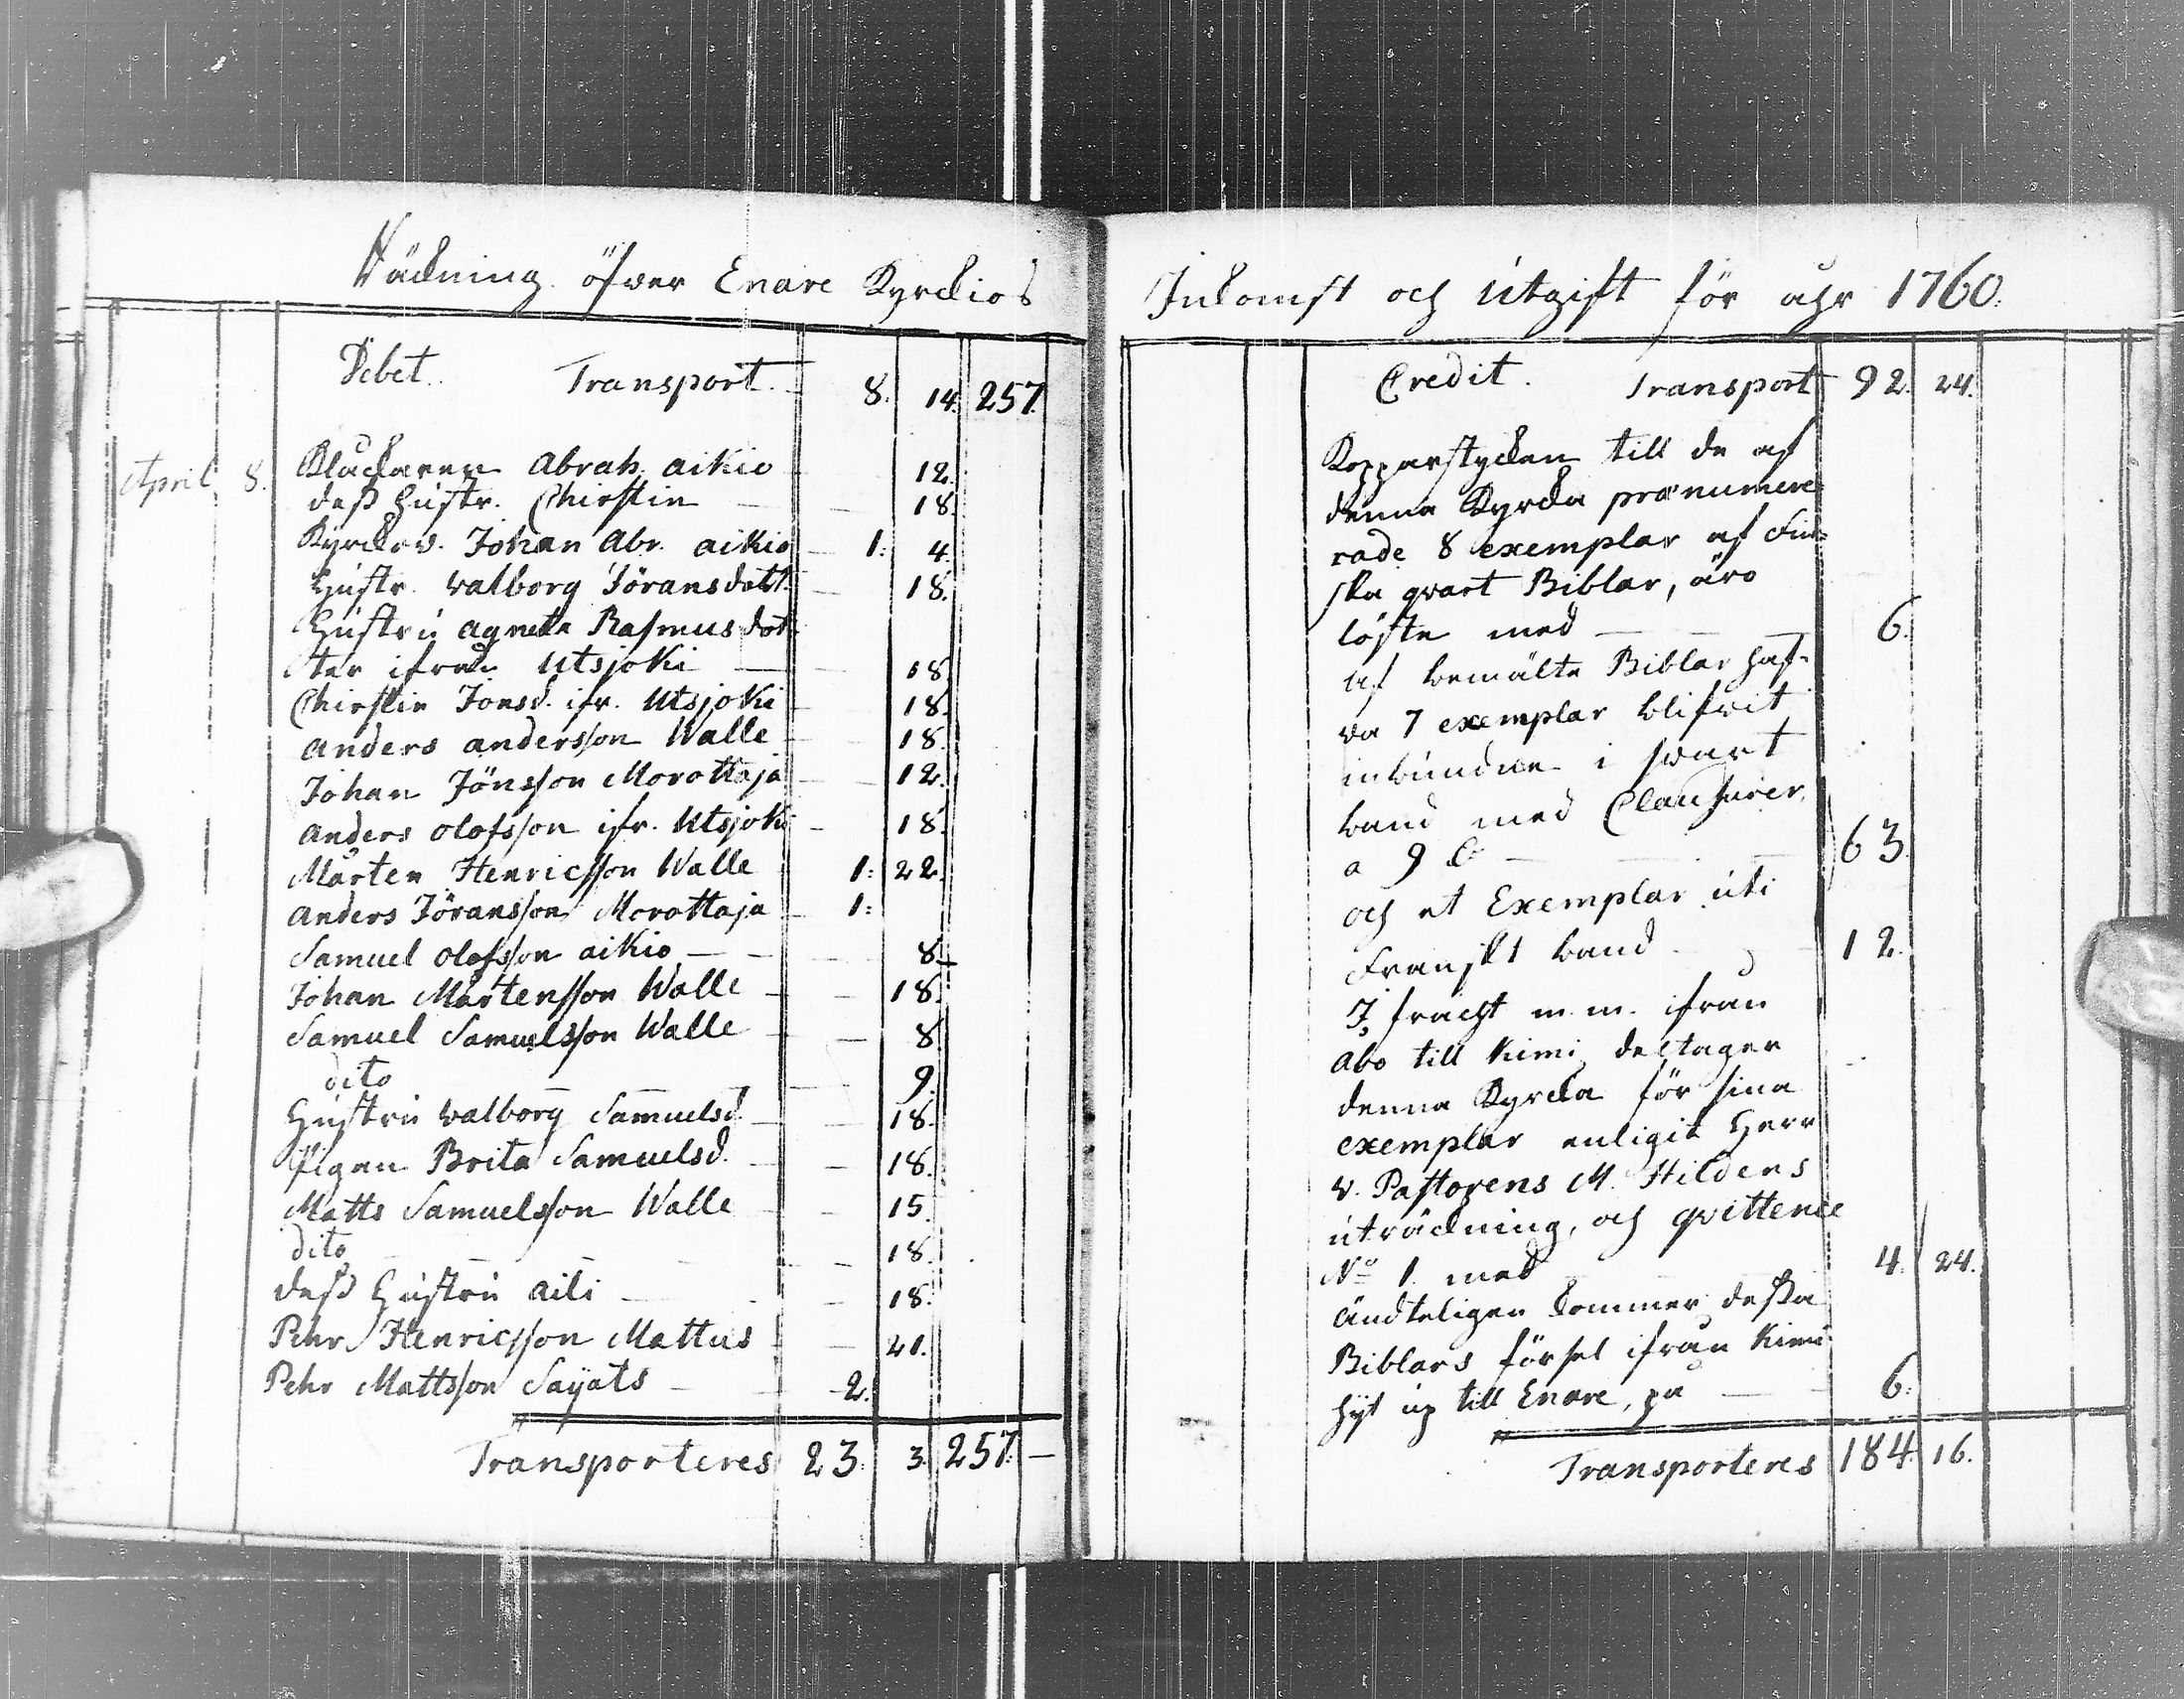 Räckning öfver Enare Kyrckios
Debet. Transport. 8. 14. 257.
April 8. Klackaren Abrah. Aikio 12.
dess hustr. Chirstin 18.
Kyrckov. Johan Abr. Aikio 1: 4.
Hustr. Walborg Jöransdott. 18.
Hustru Agneta Rasmusdot-
ter ifrån Utsjoki 18.
Chirstin Jonsd. ifr. Utsjoki 18.
Anders Andersson Walle 18.
Johan Jönsson Morottaja 12.
Anders Olofsson ifr. Utsjoki 18.
Mårten Henricsson Walle 1: 22.
Anders Jöransson Morottaja 1:
Samuel Olofsson Aikio 8.
Johan Mårtensson Walle 18.
Samuel Samuelsson Walle 8.
dito 9.
Hustru Walborg Samuelsd. 18.
Pigan Brita Samuelsd. 18.
Matts Samuelsson Walle 15.
dito 18.
dess Hustru Aili 18.
Pehr Henricsson Mattus 21.
Pehr Mattsson Saÿats 2.
Transporteres 23. 3. 257. —
Inkomst och Utgift för åhr 1760.
Credit. Transport 92. 24.
Kopparstycken till de af
denna Kyrcka prænumere-
rade 8 exemplar af Fin-
ska qvart Biblar, äro
löste med 6.
Af bemälte Biblar haf-
va 7 exemplar blifwit
inbundne i swart
band med Clausurer,
a 9 63.
och et Exemplar uti
Franskt band 12.
I fracht m. m. ifrån
Åbo till Kimi deltager
denna Kyrcka för sina
exemplar enligit Herr
V. Pastorens M. Hildens
uträckning, och qvittence
No 1. med 4. 24.
Ändteligen kommer dessa
Biblars försel ifrån Kimi
hijt up till Enare, på 6:
Transporteres 184. 16.